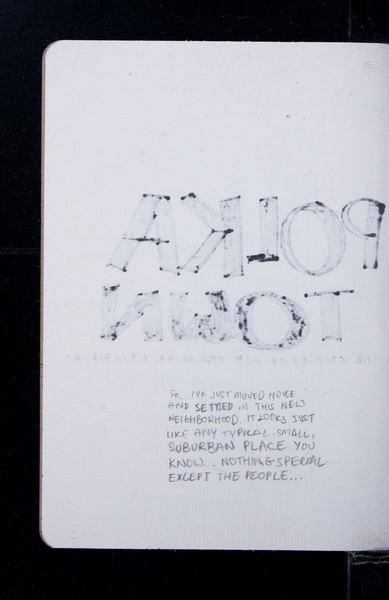 POLKA
TOWN
SO, I'VE JUST MOVED HOUSE
AND SETTLED IN THIS NEW
NEIGHBORHOOD. IT LOOKS JUST
LIKE ANY TYPICAL, SMALL,
SUBURBAN PLACE YOU
KNOW... NOTHING SPECIAL
EXCEPT THE PEOPLE...